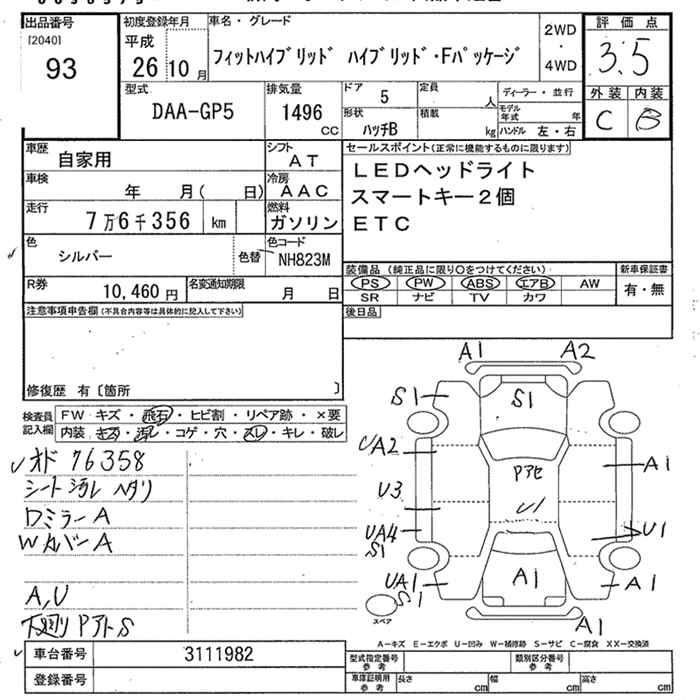 出品番号
[2040]
93
初度登録年月
平成
26 10 月
車名・グレード
フィットハイブリッド ハイブリッド・Fパッケージ
2WD
・
4WD
評価点
3.5
外装 内装
C B
型式
DAA-GP5
排気量
1496
CC
ドア 5
形状
ハッチB
定員
人
積載
kg
ディーラー・並行
モデル年式 年
ハンドル 左・右
車歴
自家用
シフト
AT
車検
年 月( 日)
冷房
AAC
走行
7万6千356 km
燃料
ガソリン
色
シルバー
色替
色コード
NH823M
R券
10,460 円
名変通知期限
月 日
セールスポイント(正常に機能するものに限ります)
LEDヘッドライト
スマートキー2個
ETC
装備品 (純正品に限り○をつけてください)
PS PW ABS エアB AW
SR ナビ TV カワ
新車保証書
有・無
後日品
注意事項申告欄(不具合内容等は具体的に記入して下さい)
修復歴 有〔箇所 〕
検査員記入欄
FW キズ・飛石・ヒビ割・リペア跡・×要
内装 キズ・汚レ・コゲ・穴・スレ・キレ・破レ
オド 76358
シート汚レ ヘタリ
ロミラーA
Wカバー A
A,U
下廻り Pアト S
A1 A2
S1 S1
UA2
Pアセ
A1
U3
U1
UA4
S1
U1
UA1
S1
A1
A1
A1
スペア
A-キズ E-エクボ U-凹み W-補修跡 S-サビ C-腐食 XX-交換済
車台番号 3111982
登録番号
型式指定番号
参考
類別区分番号
参考
車庫証明用
参考
長さ cm 幅 cm 高さ cm